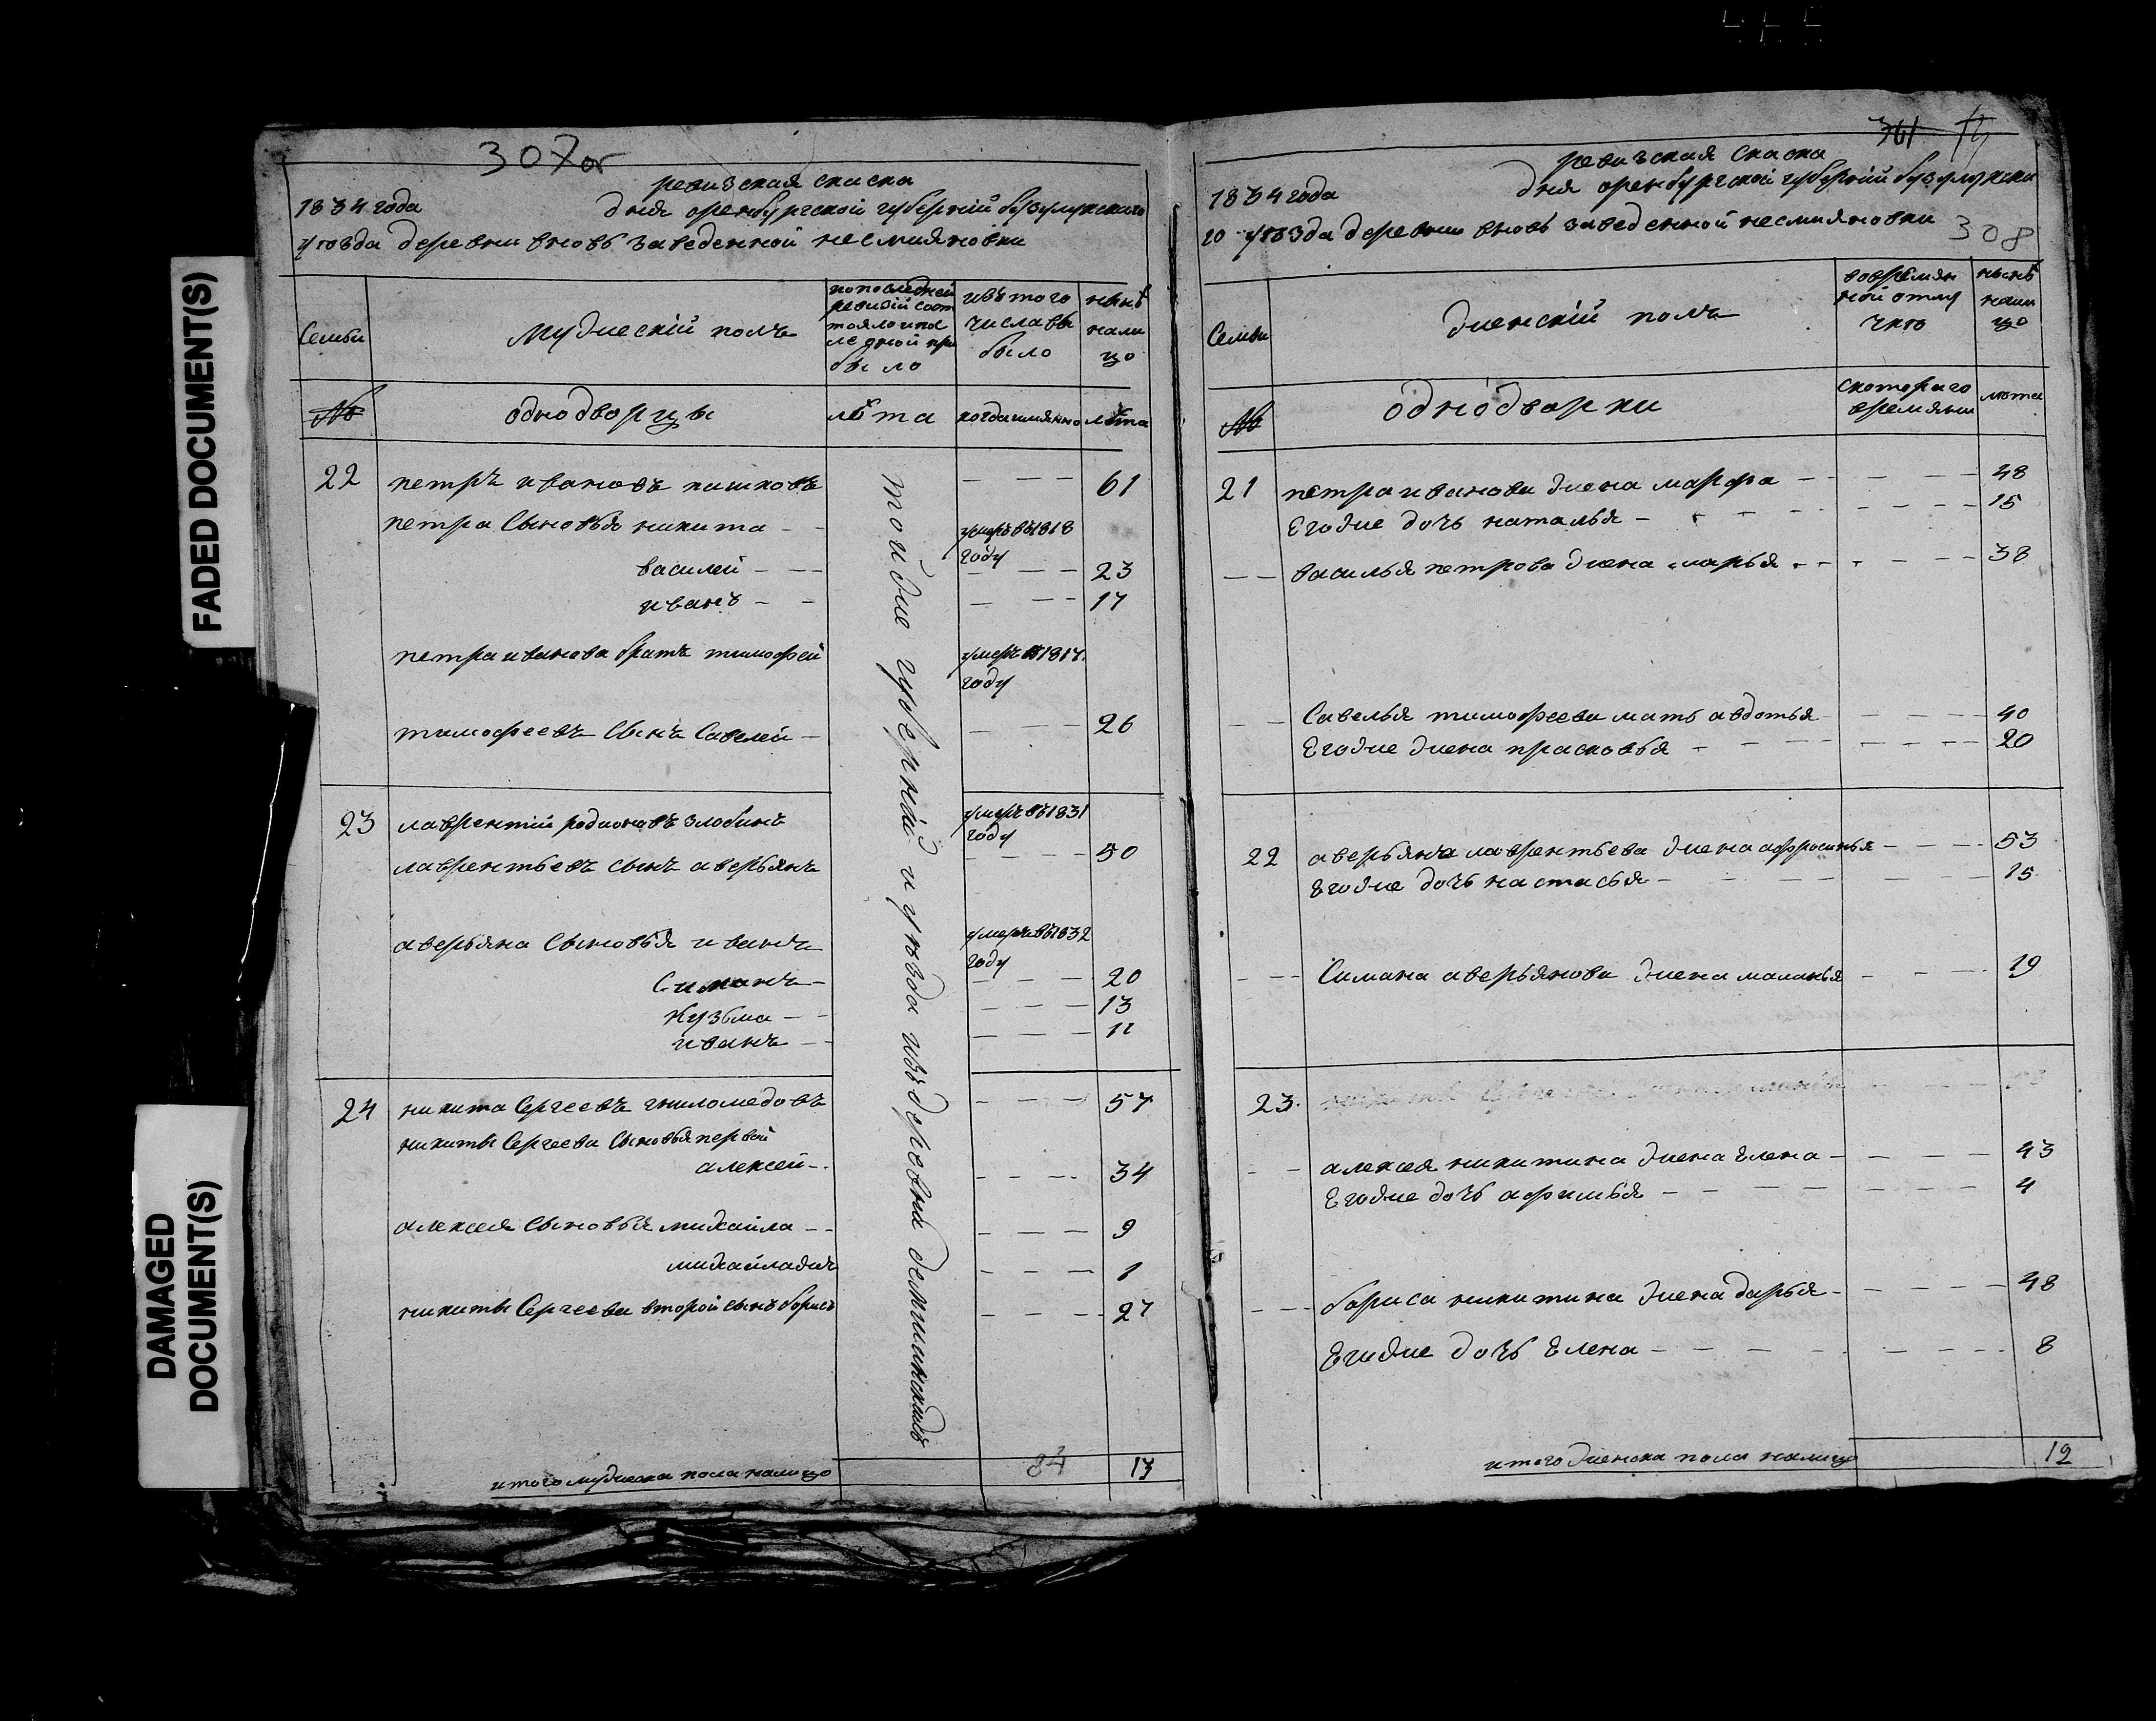 307об
ревизская сказка
1834 года дня оренбургской губерний бузулукского
уѣзда деревни вновь заведенной несмияновки
Семьи
мужескій полъ
по последней ревизій состояло и после дной прибыло
изъ того числа выбыло
нынѣ налицо
№
однодворцы
лѣта
когда имянно
лѣта
тойже губерній и уѣзда изъ деревни
22 петръ ивановъ пашковъ — — — 61
петра Сыновья никита — умеръ въ 1818 году
василей — — — 23
иванъ — — — 17
петра иванова братъ тимофей умеръ въ 1817 году
тимофеевъ Сынъ Савелей — — — 26
23 лаврентий родионовъ злобинъ умеръ въ 1831 году
лаврентьевъ сынъ аверьянъ — — — 50
аверьяна Сыновья иванъ умеръ въ 1832 году
Симанъ — — — 20
Кузьма — — — 13
иванъ — — — 11
24 никита Сергеевъ гниломедовъ — — — 57
никиты Сергеева Сыновья первой
алексей — — — 34
алексея Сыновья михайла — — — 9
михайла — — — 1
никиты Сергеева второй сынъ борисъ — — — 27
итого мужеска пола налицо 84 13
361
ревизская Сказка
1834 года дня оренбургской губерний бузулукска
го уѣзда деревни вновь заведенной несмияновки 308
Семьи
женскій полъ
во времян ной отлу чкѣ
нынѣ нали цо
№
однодворки
скотораго времяни
лѣта
21 петра иванова жена марфа — — — 48
Егоже дочь наталья — — — 15
— — василья петрова жена марья — — — 38
— — Савелья тимофеева мать авдотья — — — 40
Егоже жена прасковья — — — 20
22 аверьяна лаврентьева жена афросинья — — — 53
Егоже дочь настасья — — — 15
— — Симана аверьянова жена маланья — — — 19
23
— — алексея никитина жена Елена — — — 43
Егоже дочь афимья — — — 4
— — бориса никитина жена дарья — — — 48
Егоже дочь Елена — — — 8
итого женска пола налицо 12
FADED DOCUMENT(S)
DAMAGED
DOCUMENT(S)